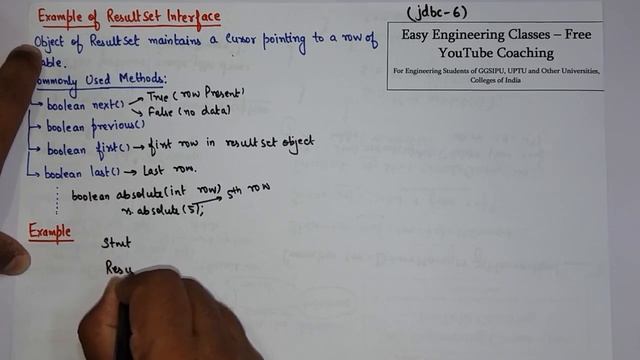 Example of ResultSet Interface
(jdbc-6)
Object of ResultSet maintains a cursor pointing to a row of
able.
Easy Engineering Classes – Free
YouTube Coaching
For Engineering Students of GGSIPU, UPTU and Other Universities,
Colleges of India
ommonly Used Methods:
boolean next() → True (row Present)
→ False (no data)
boolean previous()
boolean first() → first row in resultset object
boolean last() → Last row.
boolean absolute(int row)
rs.absolute(5); → 5th row
Example
Stmt
Resu